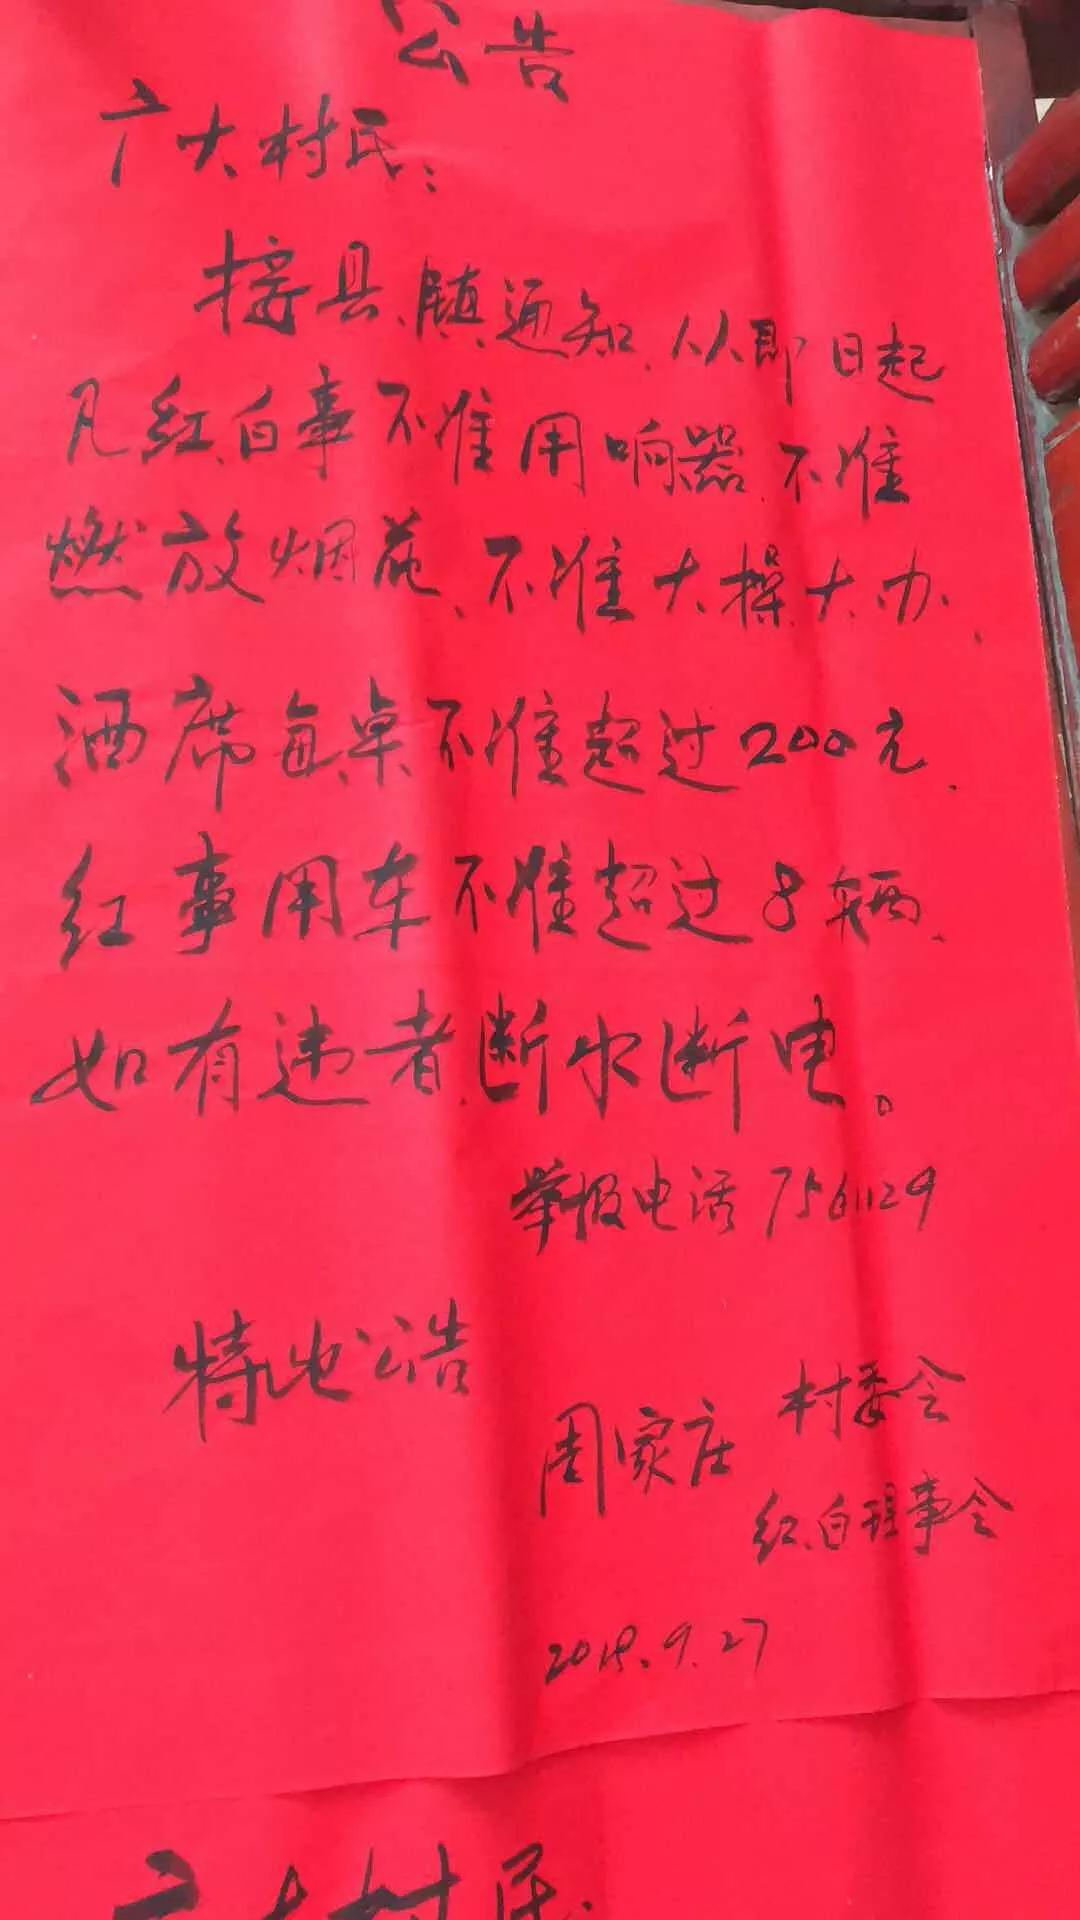 公告
广大村民：
接县、镇通知、从即日起
凡红、白事不准用响器、不准
燃放烟花、不准大操大办、
酒席每桌不准超过200元、
红事用车不准超过8辆、
如有违者、断水断电。
举报电话7561129
特此公告
周家庄 村委会
红、白理事会
2018.9.27
广大村民：